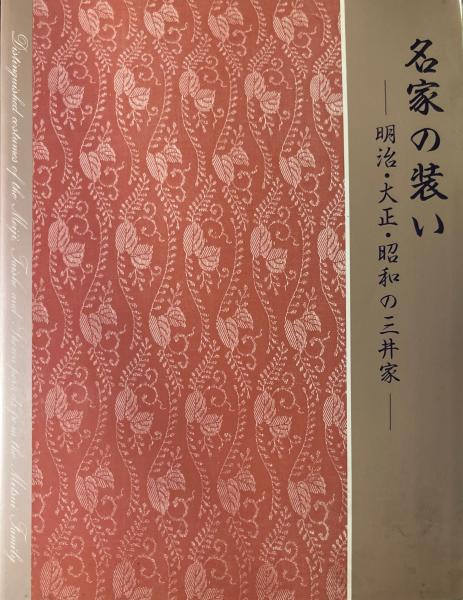 名家の装い
―明治・大正・昭和の三井家―
Distinguished costumes of the Meiji, Taisho and Showa periods from the Mitsui Family